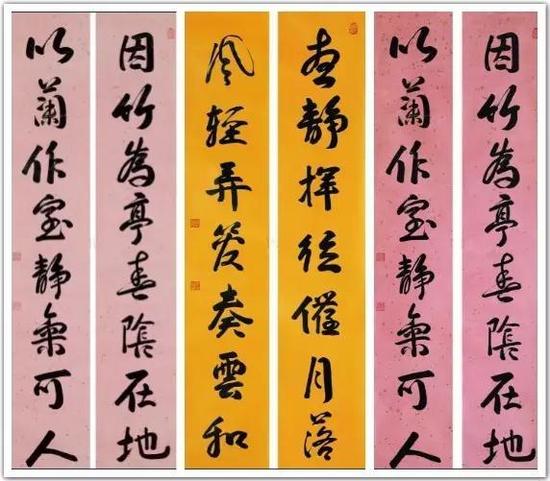 因竹為亭春陰在地
以蘭作室静氣可人
静揮催月落
風輕弄管奏雲和
因竹為亭春陰在地
以蘭作室静氣可人